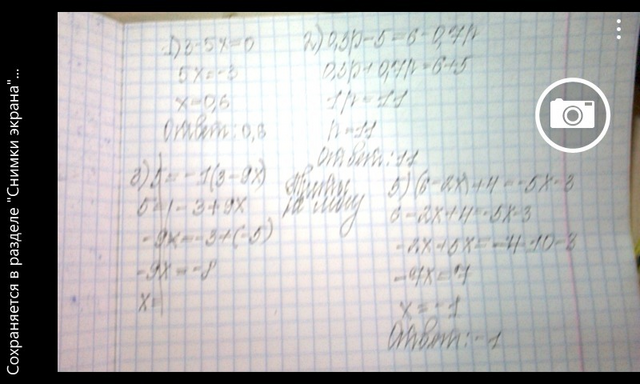 Сохраняется в разделе "Снимки экрана"...
1) 3-5x=0
5x=-3
x=0,6
Ответ: 0,6
2) 0,3p-5=6-0,7p
0,3p+0,7p=6+5
1p=11
p=11
Ответ: 11
3) 5=-1(3-9x)
5=1-3+9x
-9x=-3+(-5)
-9x=-8
x=
5) (6-2x)+4=-5x-3
6-2x+4=-5x-3
x=-1
Ответ: -1